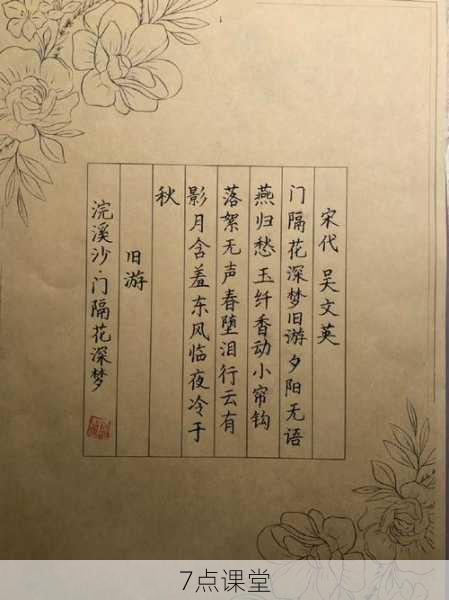 宋代 吴文英
门隔花深梦旧游 夕阳无语
燕归愁 玉纤香动小帘钩
落絮无声春堕泪 行云有
影月含羞 东风临夜冷于
秋
旧游
浣溪沙·门隔花深梦
7点课堂